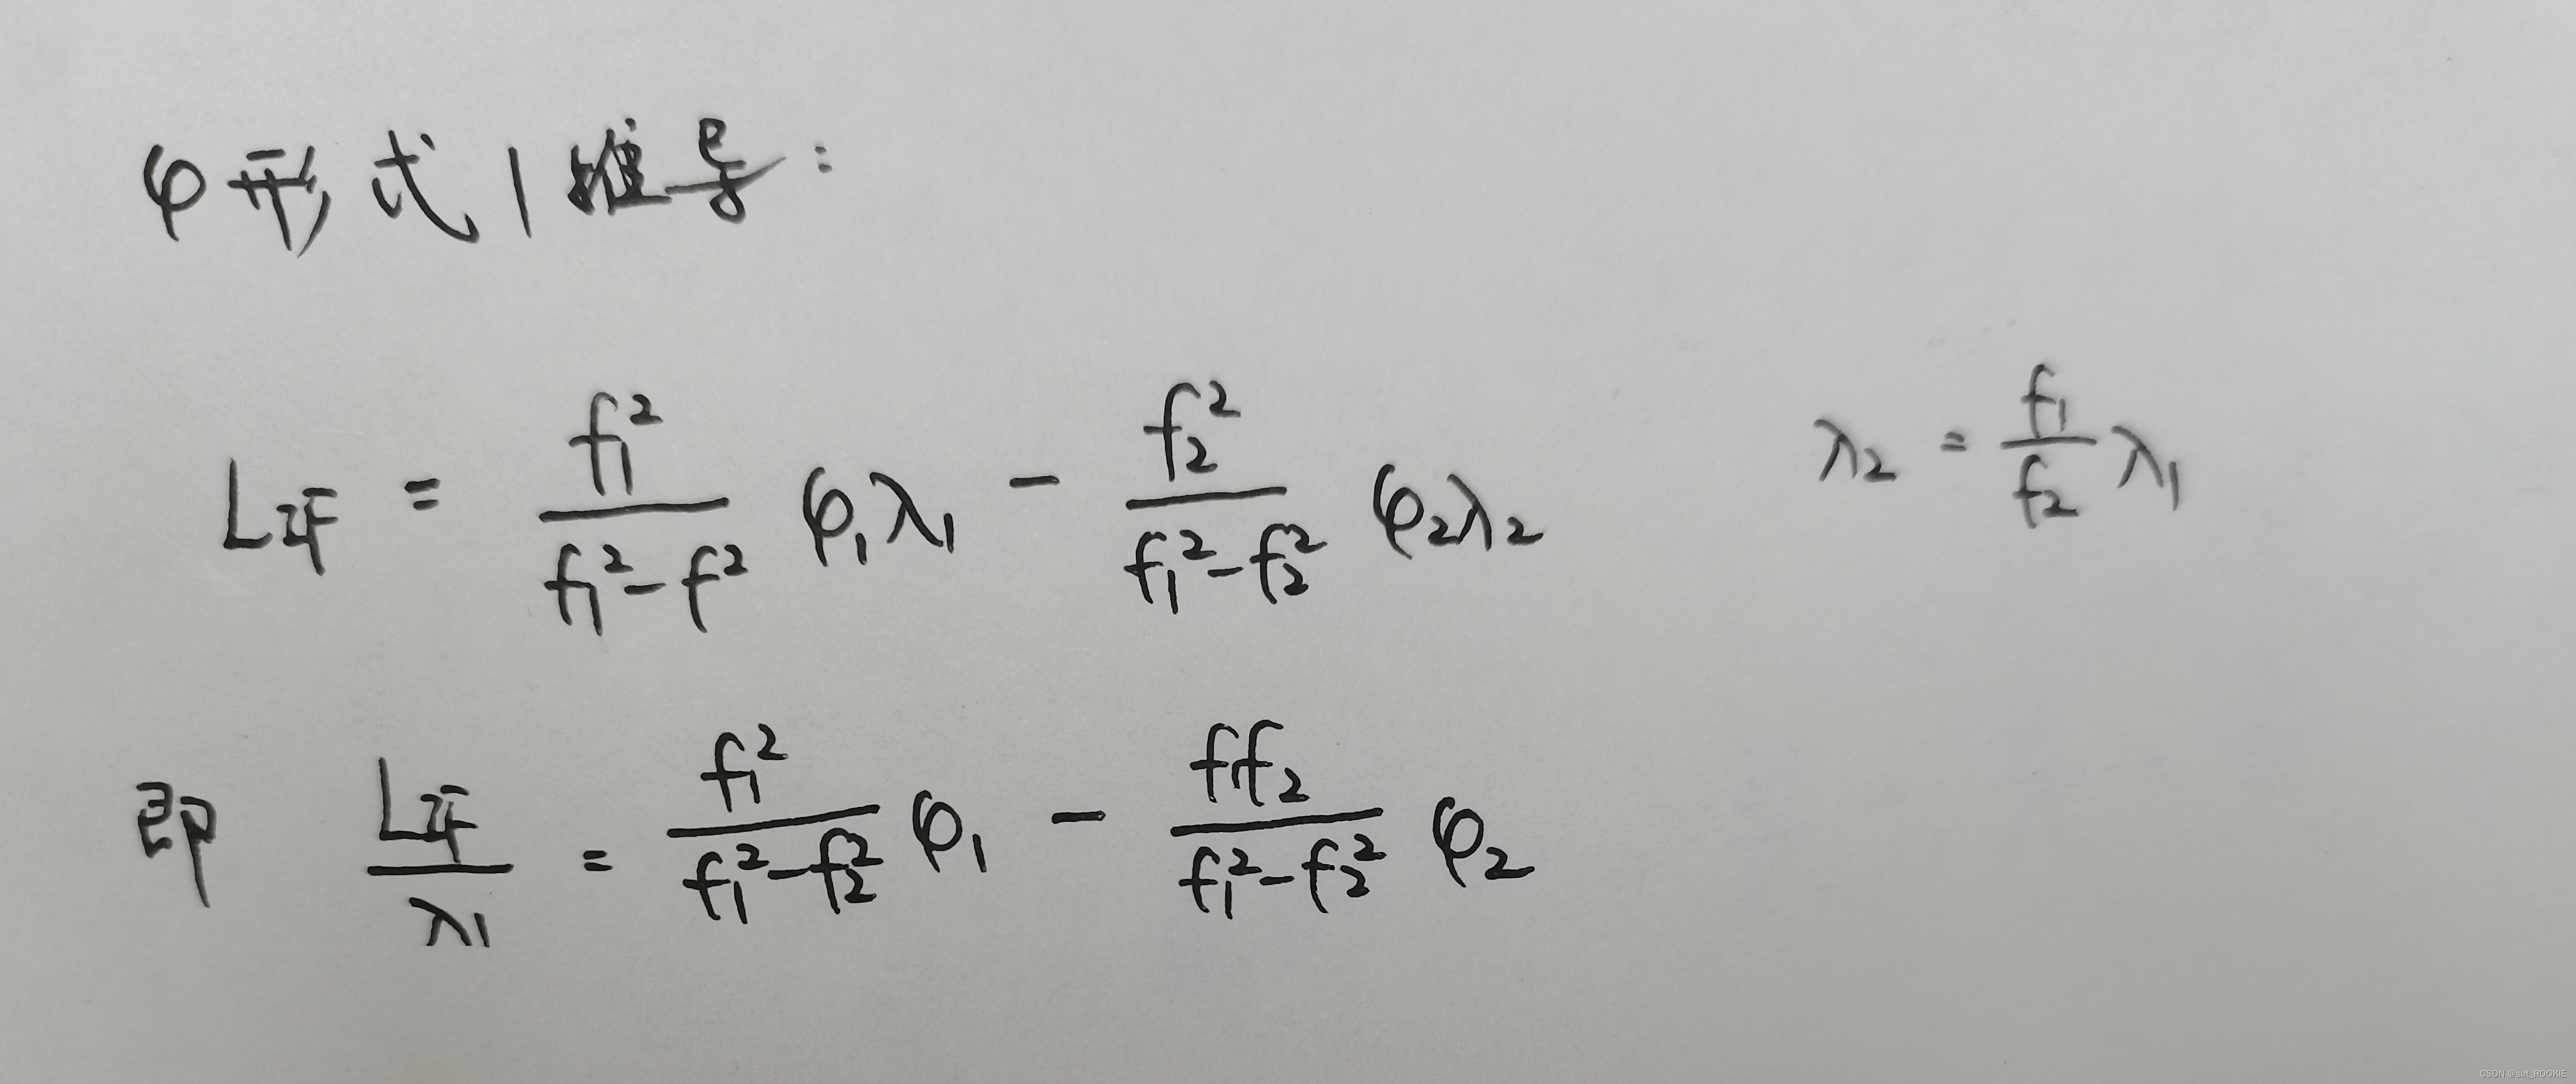 φ形式1推导:
L_IF = \frac{f_1^2}{f_1^2-f^2} φ_1λ_1 - \frac{f_2^2}{f_1^2-f_2^2} φ_2λ_2    λ_2 = \frac{f_1}{f_2} λ_1
即 \frac{L_IF}{λ_1} = \frac{f_1^2}{f_1^2-f_2^2} φ_1 - \frac{f_1f_2}{f_1^2-f_2^2} φ_2
CSDN @sat_ROOKIE